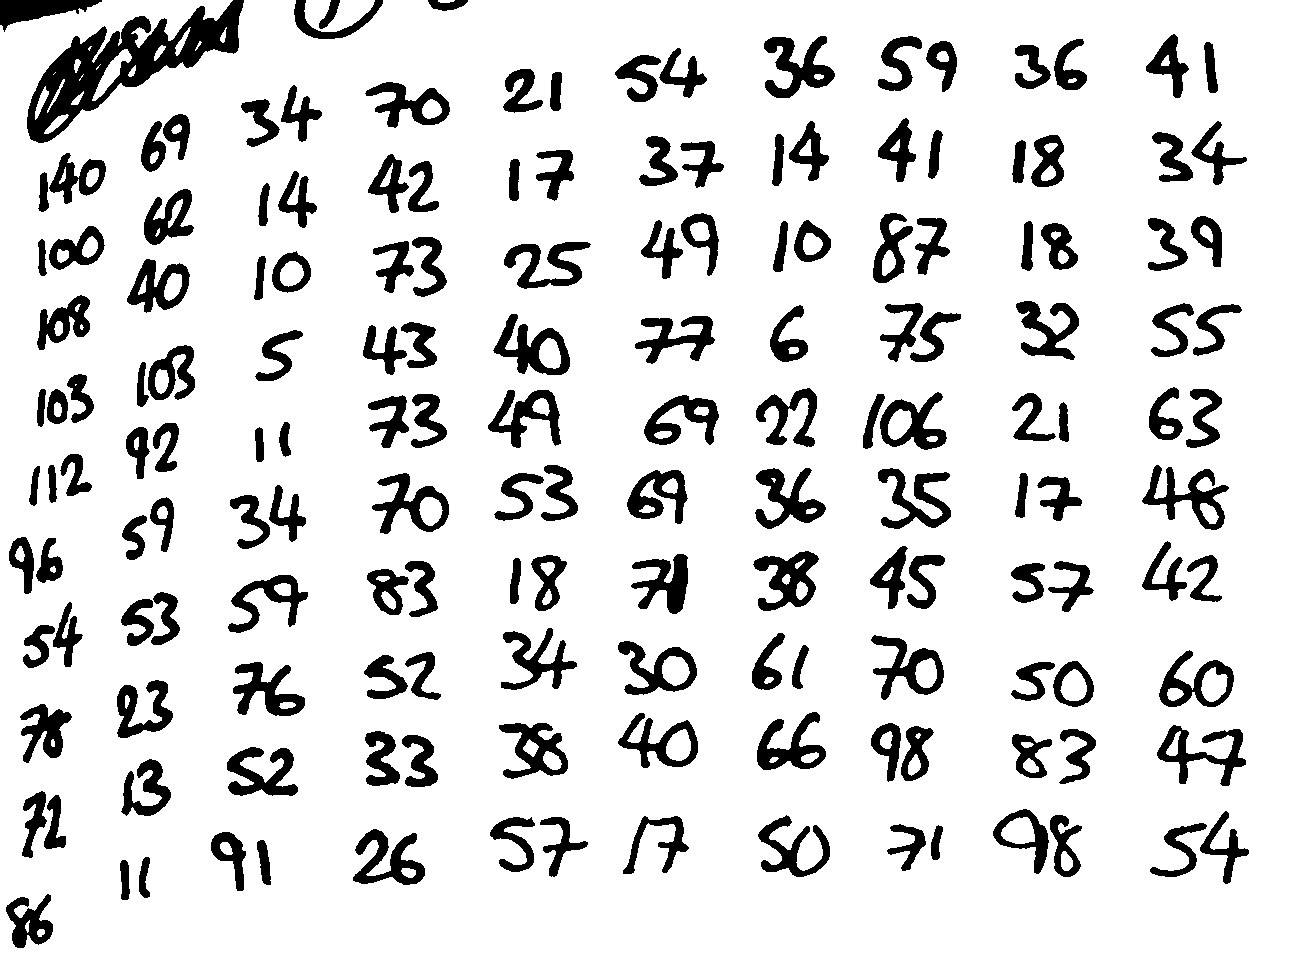 140 69 34 70 21 54 36 59 36 41
100 62 14 42 17 37 14 41 18 34
108 40 10 73 25 49 10 87 18 39
103 103 5 43 40 77 6 75 32 55
112 92 11 73 49 69 22 106 21 63
96 59 34 70 53 69 36 35 17 48
54 53 59 83 18 71 38 45 57 42
78 23 76 52 34 30 61 70 50 60
72 13 52 33 38 40 66 98 83 47
86 11 91 26 57 17 50 71 98 54